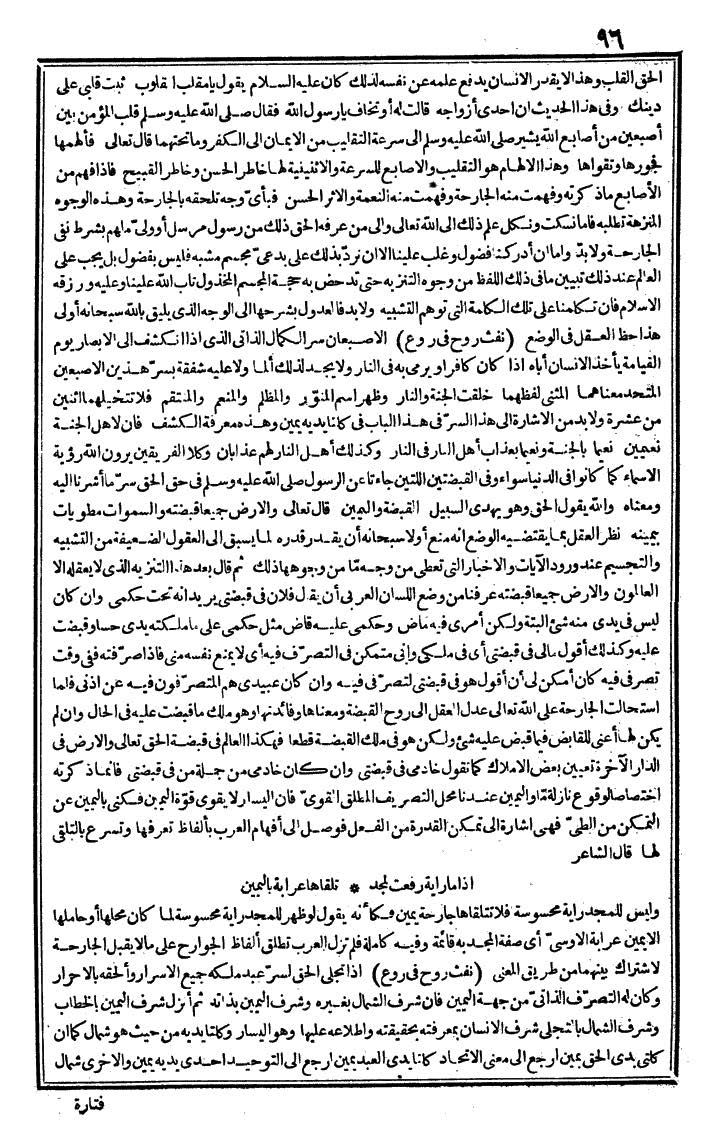 ٩٦
الحق القلب وهذا لا يقدر الانسان يدفع علمه عن نفسه لذلك كان عليه السلام يقول يا مقلب القلوب ثبت قلبي على
دينك وفي هذا الحديث ان احدى أزواجه قالت له أو تخاف يا رسول الله فقال صلى الله عليه وسلم قلب المؤمن بين
أصبعين من أصابع الله يشير صلى الله عليه وسلم الى سرعة التقليب من الايمان الى الكفر وما تحتهما قال تعالى فألهمها
فجورها وتقواها وهذا الالهام هو التقليب والاصابع للسرعة والاثنينية لها خاطر الحسن وخاطر القبيح فاذا فهم من
الأصابع ماذكرته وفهمت منه الجارحة وفهمت منه النعمة والاثر الحسن فبأى وجه تلحقه بالجارحة وهذه الوجوه
المنزهة تطلبه فاما نسكت ونكل علم ذلك الى الله تعالى والى من عرفه الحق ذلك من رسول مرسل أو ولىّ ملهم بشرط نفى
الجارحة ولا بدّ واما ان أدركنا فضول وغلب علينا الا ان نردّ بذلك على بدعىّ مجسم مشبه فليس بفضول بل يجب على
العالم عند ذلك تبيين ما فى ذلك اللفظ من وجوه التنزيه حتى تدحض به حجة المجسم المخذول تاب الله علينا وعليه ورزقه
الاسلام فان تكلمنا على تلك الكلمة التى توهم التشبيه ولا بد فالعدول بشرحها الى الوجه الذى يليق بالله سبحانه أولى
هذا حظ العقل فى الوضع (نفث روح فى روع) الاصبعان سر الكمال الذاتى الذى اذا انكشف الى الابصار يوم
القيامة يأخذ الانسان أباه اذا كان كافرا ويرمى به فى النار ولا يجد لذلك ألما ولا عليه شفقة بسرّ هذين الاصبعين
المتحد معناهما المثنى لفظهما خلقت الجنة والنار وظهر اسم المنوّر والمظلم والمنعم والمنتقم فلا تتخيلهما اثنين
من عشرة ولا بد من الاشارة الى هذا السرّ فى هذا الباب فى كلتا يديه يمين وهذه معرفة الكشف فان لاهل الجنة
نعيمين نعيما بالجنة ونعيما بعذاب أهل النار فى النار وكذلك أهل النار لهم عذابان وكلا الفريقين يرون الله رؤية
الاسماء كما كانوا فى الدنيا سواء وفى القبضتين اللتين جاءتا عن الرسول صلى الله عليه وسلم فى حق الحق سرّ ما أشرنا اليه
ومعناه والله يقول الحق وهو يهدى السبيل القبضة واليمين قال تعالى والارض جميعا قبضته والسموات مطويات
بيمينه نظر العقل بما يقتضيه الوضع انه منع أولا سبحانه أن يقدر قدره لما يسبق الى العقول الضعيفة من التشبيه
والتجسيم عند ورود الآيات والاخبار التى تعطى من وجه مّا من وجوهها ذلك ثم قال بعد هذا التنزيه الذى لا يعقله الا
العالمون والارض جميعا قبضته عرفنا من وضع اللسان العربى أن يقال فلان فى قبضتى يريد انه تحت حكمى وان كان
ليس فى يدى منه شئ البتة ولكن أمرى فيه ماض وحكمى عليه قاض مثل حكمى على ما ملكته يدى حسا وقبضت
عليه وكذلك أقول مالى فى قبضتى أى فى ملكى وانى متمكن فى التصرّف فيه أى لا يمنع نفسه منى فاذا صرّفته ففى وقت
تصرفى فيه كان أمكن لى أن أقول هو فى قبضتى لتصرفى فيه وان كان عبيدى هم المتصرّفون فيه عن اذنى فلما
استحالت الجارحة على الله تعالى عدل العقل الى روح القبضة ومعناها وفائدتها وهو ملك ما قبضت عليه فى الحال وان لم
يكن لها أعنى للقابض فيما قبض عليه شئ ولكن هو فى ملك القبضة قطعا فهكذا العالم فى قبضة الحق تعالى والارض فى
الدار الآخرة تعيين بعض الاملاك كما نقول خادمى فى قبضتى وان كان خادمى من جملة من فى قبضتى فانما ذكرته
اختصاصا لوقوع نازلة مّا واليمين عندنا محل التصريف المطلق القوىّ فان اليسار لا يقوى قوّة اليمين فكنى باليمين عن
التمكن من الطىّ فهى اشارة الى تمكن القدرة من الفعل فوصل الى أفهام العرب بألفاظ تعرفها وتسرع بالتلقى
لها قال الشاعر
اذا ما راية رفعت لمجد * تلقاها عرابة باليمين
وليس للمجد راية محسوسة فلا تتلقاها جارحة يمين فكأنه يقول لو ظهر للمجد راية محسوسة لما كان محلها أو حاملها
الا يمين عرابة الاوسىّ أى صفة المجد به قائمة وفيه كاملة فلم تزل العرب تطلق ألفاظ الجوارح على ما لا يقبل الجارحة
لاشتراك بينهما من طريق المعنى (نفث روح فى روع) اذا تجلى الحق لسرّ عبد ملكه جميع الاسرار وألحقه بالاحرار
وكان له التصرّف الذاتىّ من جهة اليمين فان شرف الشمال بغيره وشرف اليمين بذاته ثم أنزل شرف اليمين بالخطاب
وشرف الشمال بالتجلى شرف الانسان بمعرفته بحقيقته واطلاعه عليها وهو اليسار وكلتا يديه من حيث هو شمال كما ان
كلتى يدى الحق يمين ارجع الى معنى الاتحاد كلتا يدى العبد يمين ارجع الى التوحيد احدى يديه يمين والاخرى شمال
فتارة